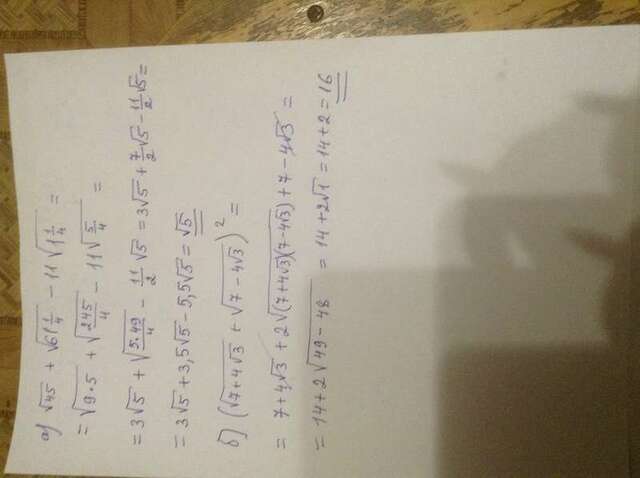 а) √45 + √61 1/4 − 11√1 1/4 =
= √9·5 + √245/4 − 11√5/4 =
= 3√5 + √5·49/4 − 11/2 √5 = 3√5 + 7/2 √5 − 11/2 √5 =
= 3√5 + 3,5√5 − 5,5√5 = √5
б) (√7+4√3 + √7−4√3)² =
= 7+4√3 + 2√(7+4√3)(7−4√3) + 7−4√3 =
= 14+2√49−48 = 14+2√1 = 14+2 = 16